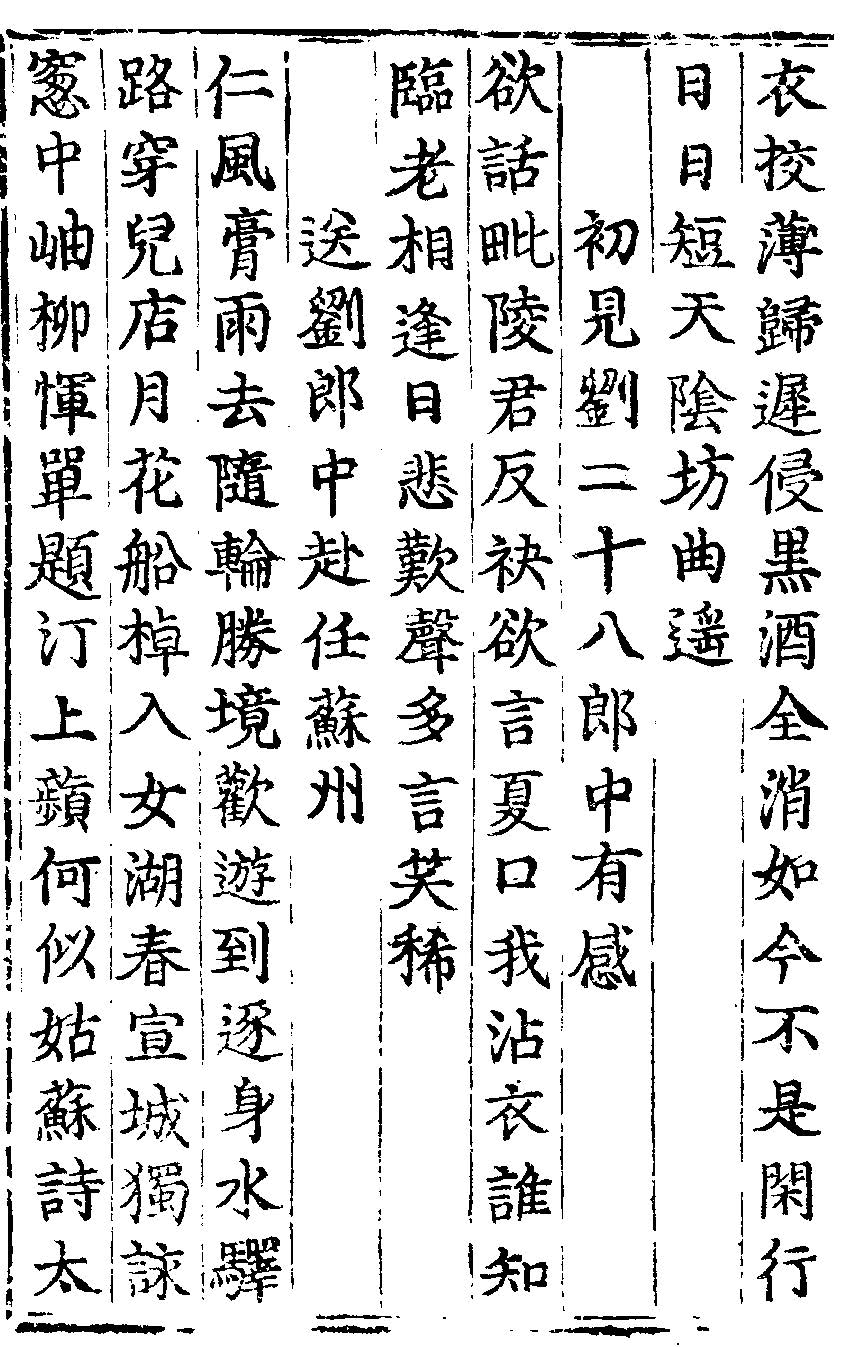 衣校薄歸遲侵黒酒全消如今不是閑行
日日短天陰坊曲遥
初見劉二十八郎中有感
欲話毗陵君反袂欲言夏口我沾衣誰知
臨老相逢日悲歎聲多言笑稀
送劉郎中赴任蘇州
仁風膏雨去隨輪勝境歡遊到逐身水驛
路穿兒店月花船棹入女湖春宣城獨詠
窓中岫柳惲單題汀上蘋何似姑蘇詩太